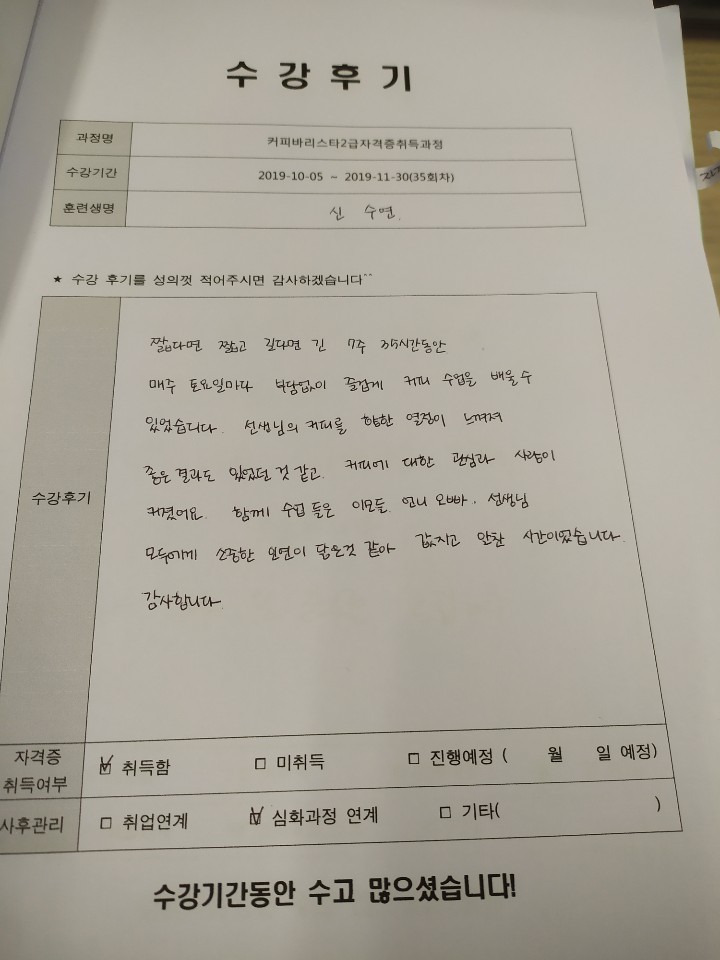 수강후기
과정명 커피바리스타2급자격증취득과정
수강기간 2019-10-05 ~ 2019-11-30(35회차)
훈련생명 신 수연.
★ 수강 후기를 성의껏 적어주시면 감사하겠습니다^^
수강후기
짧다면 짧고 길다면 긴 7주 35시간동안
매주 토요일마다 부담없이 즐겁게 커피 수업을 배울 수
있었습니다. 선생님의 커피를 향한 열정이 느껴져
좋은 결과도 있었던 것 같고. 커피에 대한 관심과 사랑이
커졌어요. 함께 수업 들은 이모들. 언니 오빠. 선생님
모두에게 소중한 인연이 닿은것 같아 값지고 알찬 시간이었습니다.
감사합니다.
자격증 취득여부 ☑ 취득함 □ 미취득 □ 진행예정 ( 월 일 예정)
사후관리 □ 취업연계 ☑ 심화과정 연계 □ 기타( )
수강기간동안 수고 많으셨습니다!